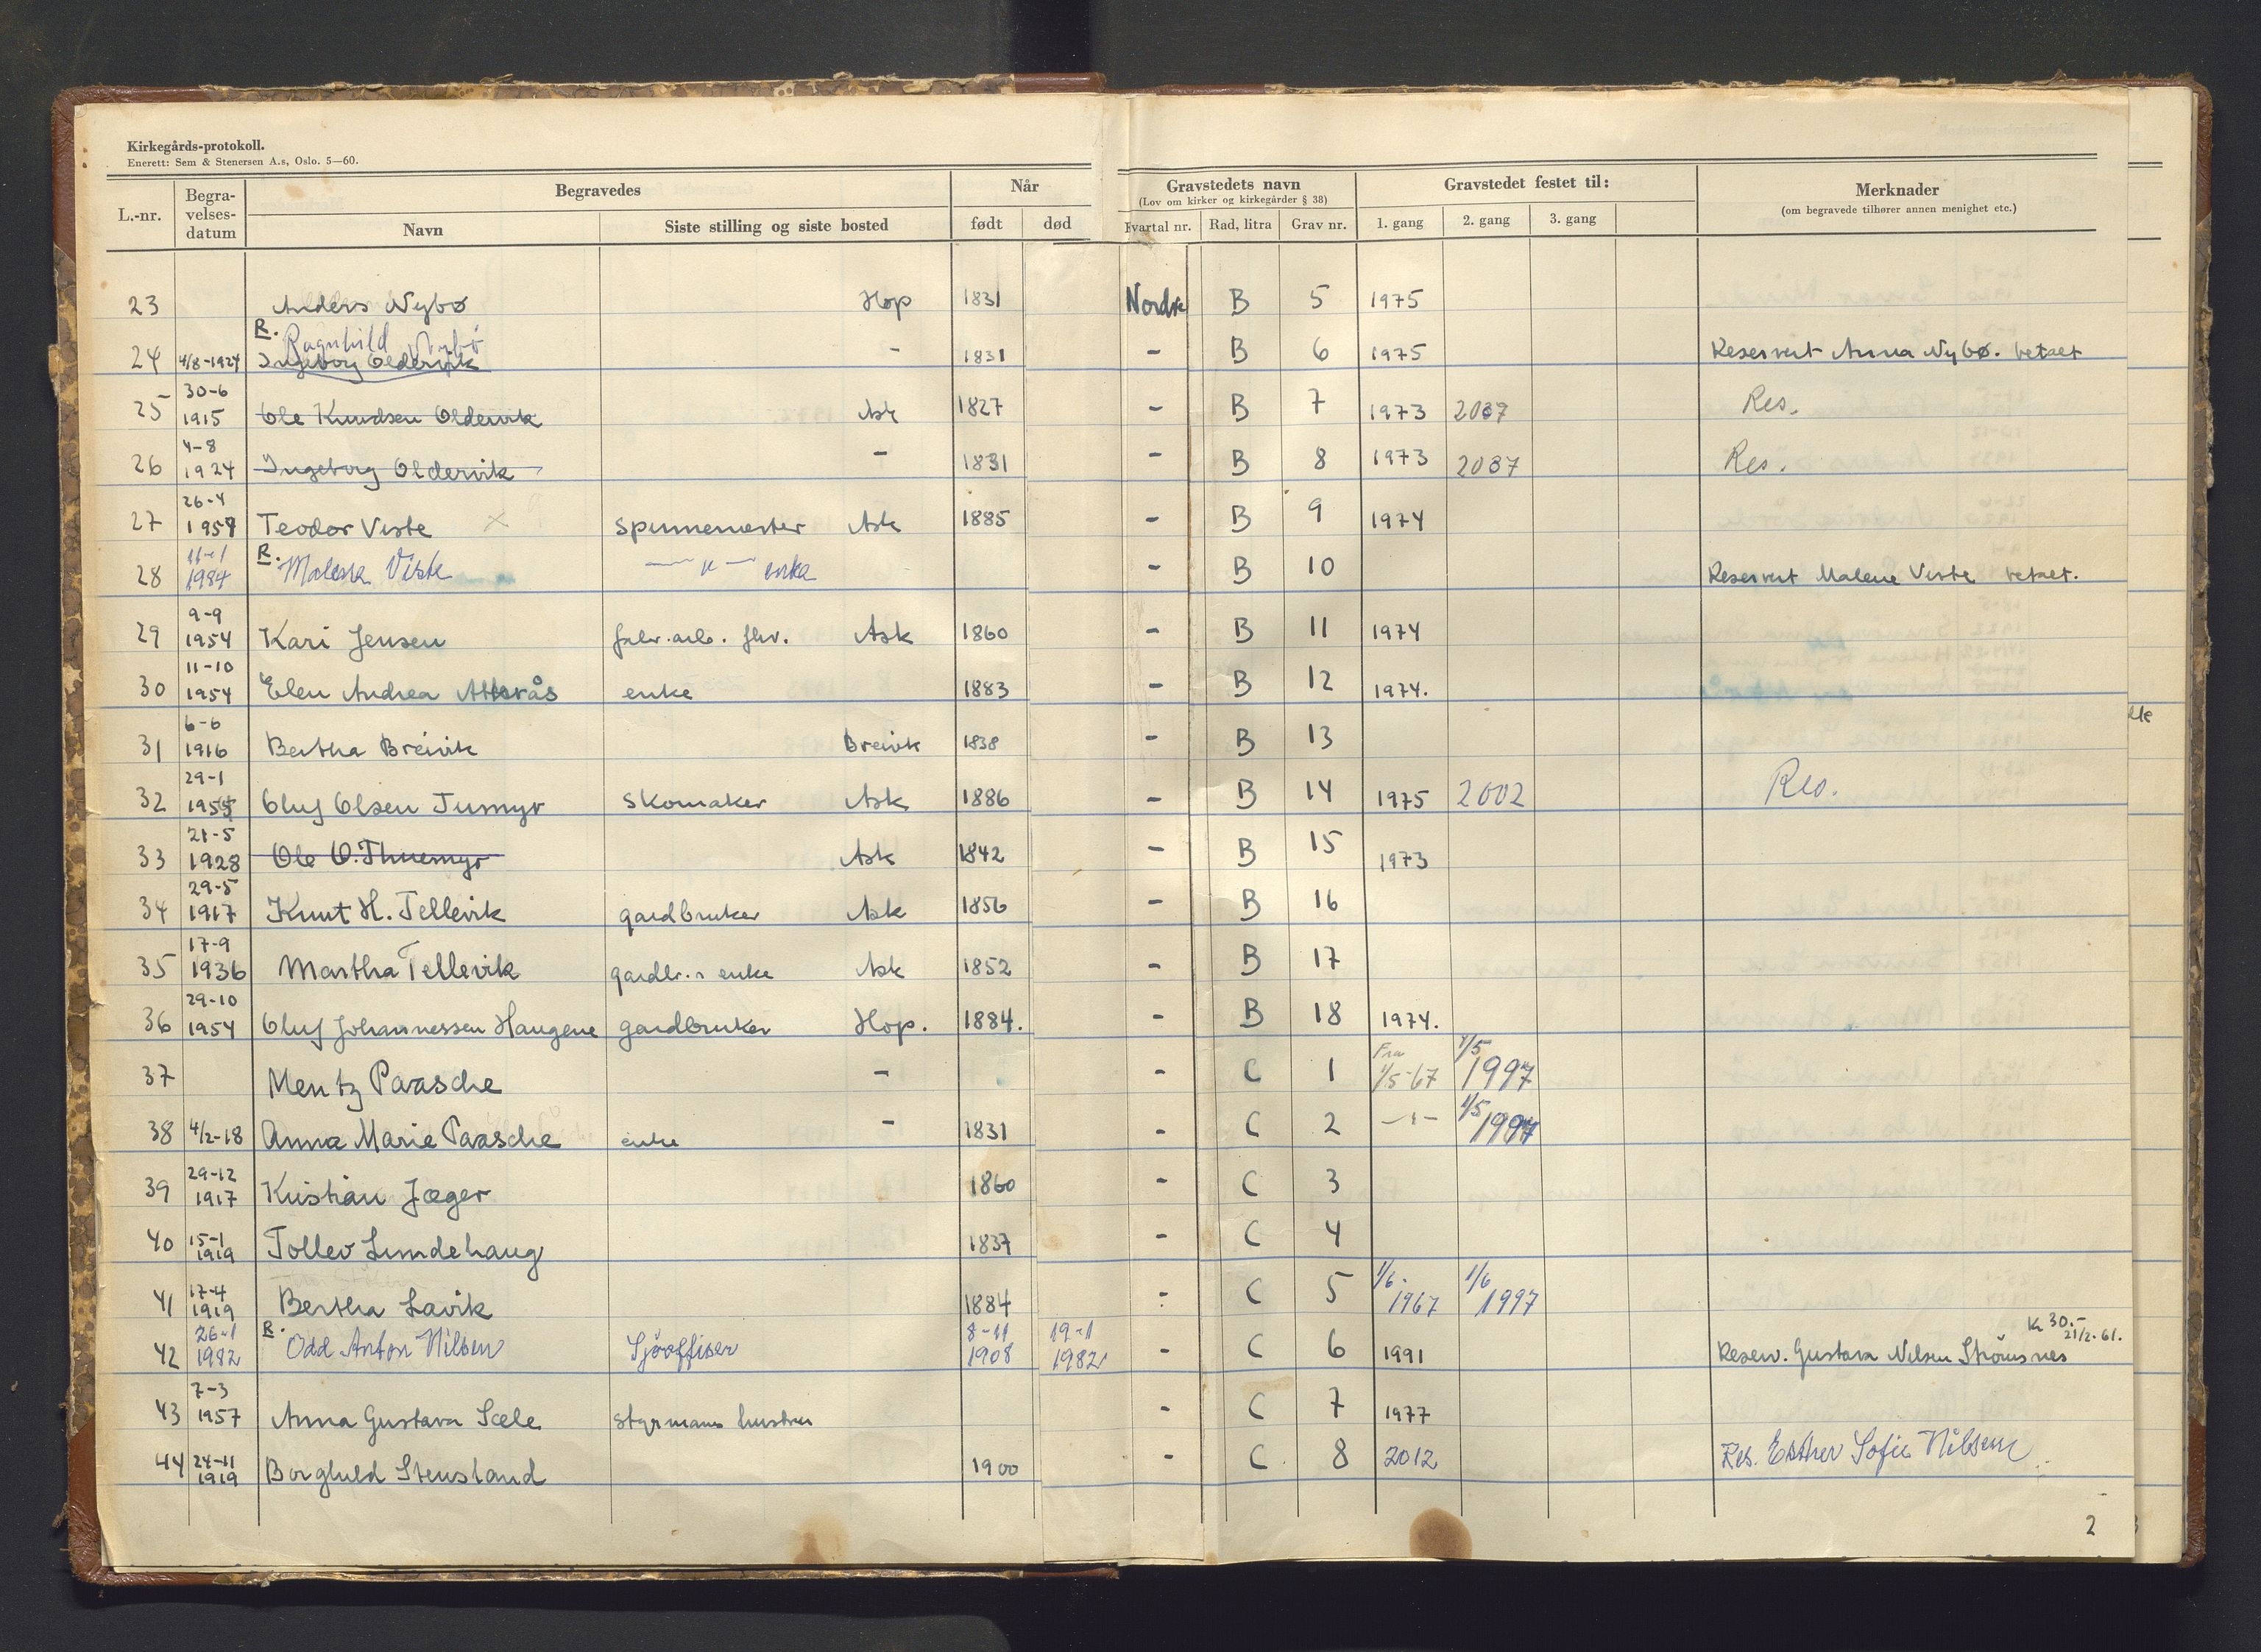 Kirkegårds-protokoll.
Enerett: Sem & Stenersen A.s, Oslo. 5—60.
L.-nr. Begra-velses-datum Begravedes Når Gravstedets navn Gravstedet festet til: Merknader
(Lov om kirker og kirkegårder § 38) (om begravede tilhører annen menighet etc.)
Navn Siste stilling og siste bosted født død Kvartal nr. Rad, litra Grav nr. 1. gang 2. gang 3. gang
23 Anders Nybø Hop 1831 Nordre B 5 1975
R. Ragnhild Nybö
24 4/8-1924 Ingeborg Oldervik - 1831 - B 6 1975 Reservert Anna Nybø. betalt
25 30-6 1915 Ole Knudsen Oldervik Ask 1827 - B 7 1973 2037 Res.
26 4-8 1924 Ingeborg Oldervik - 1831 - B 8 1973 2037 Res.
27 26-4 1954 Teodor Viste x spinnemester Ask 1885 - B 9 1974
28 11-1 1984 R. Malene Viste — " — enke - B 10 Reservert Malene Viste betalt.
29 9-9 1954 Kari Jensen fabr. arb. Ask 1860 - B 11 1974
30 11-10 1954 Elen Andrea Atterås enke 1883 - B 12 1974.
31 6-6 1916 Bertha Breivik Breivik 1838 - B 13
32 29-1 1955 Oluf Olsen Tumyr skomaker Ask 1886 - B 14 1975 2002 Res.
33 21-5 1928 Ole O. Thuemyr Ask 1842 - B 15 1973
34 29-5 1917 Knut H. Tellevik gardbruker Ask 1856 - B 16
35 17-9 1936 Martha Tellevik gardbr.s enke Ask 1852 - B 17
36 29-10 1954 Oluf Johannessen Haugene gardbruker Hop. 1884. - B 18 1974.
37 Mentz Paasche - - C 1 Fra 1/5-67 1/5 1997
38 4/2-18 Anna Marie Paasche enke - 1831 - C 2 -"- 1/5 1997
39 29-12 1917 Kristian Jæger 1860 - C 3
40 15-1 1919 Tollev Lundehaug 1837 - C 4
41 17-4 1919 Bertha Lavik 1884 - C 5 1/6. 1967 1/6 1997
42 26-1 1982 R. Odd Anton Nilsen Sjöoffiser 8-11 1908 19-1 1982 - C 6 1991 Reserv. Gustava Nilsen Strömsnes Kr 30.- 21/2-61.
43 7-3 1957 Anna Gustava Sæle styrmanns hustru - C 7 1977
44 24-11 1919 Borghild Stensland 1900 - C 8 2012 Res. Esther Sofie Nilsen
2